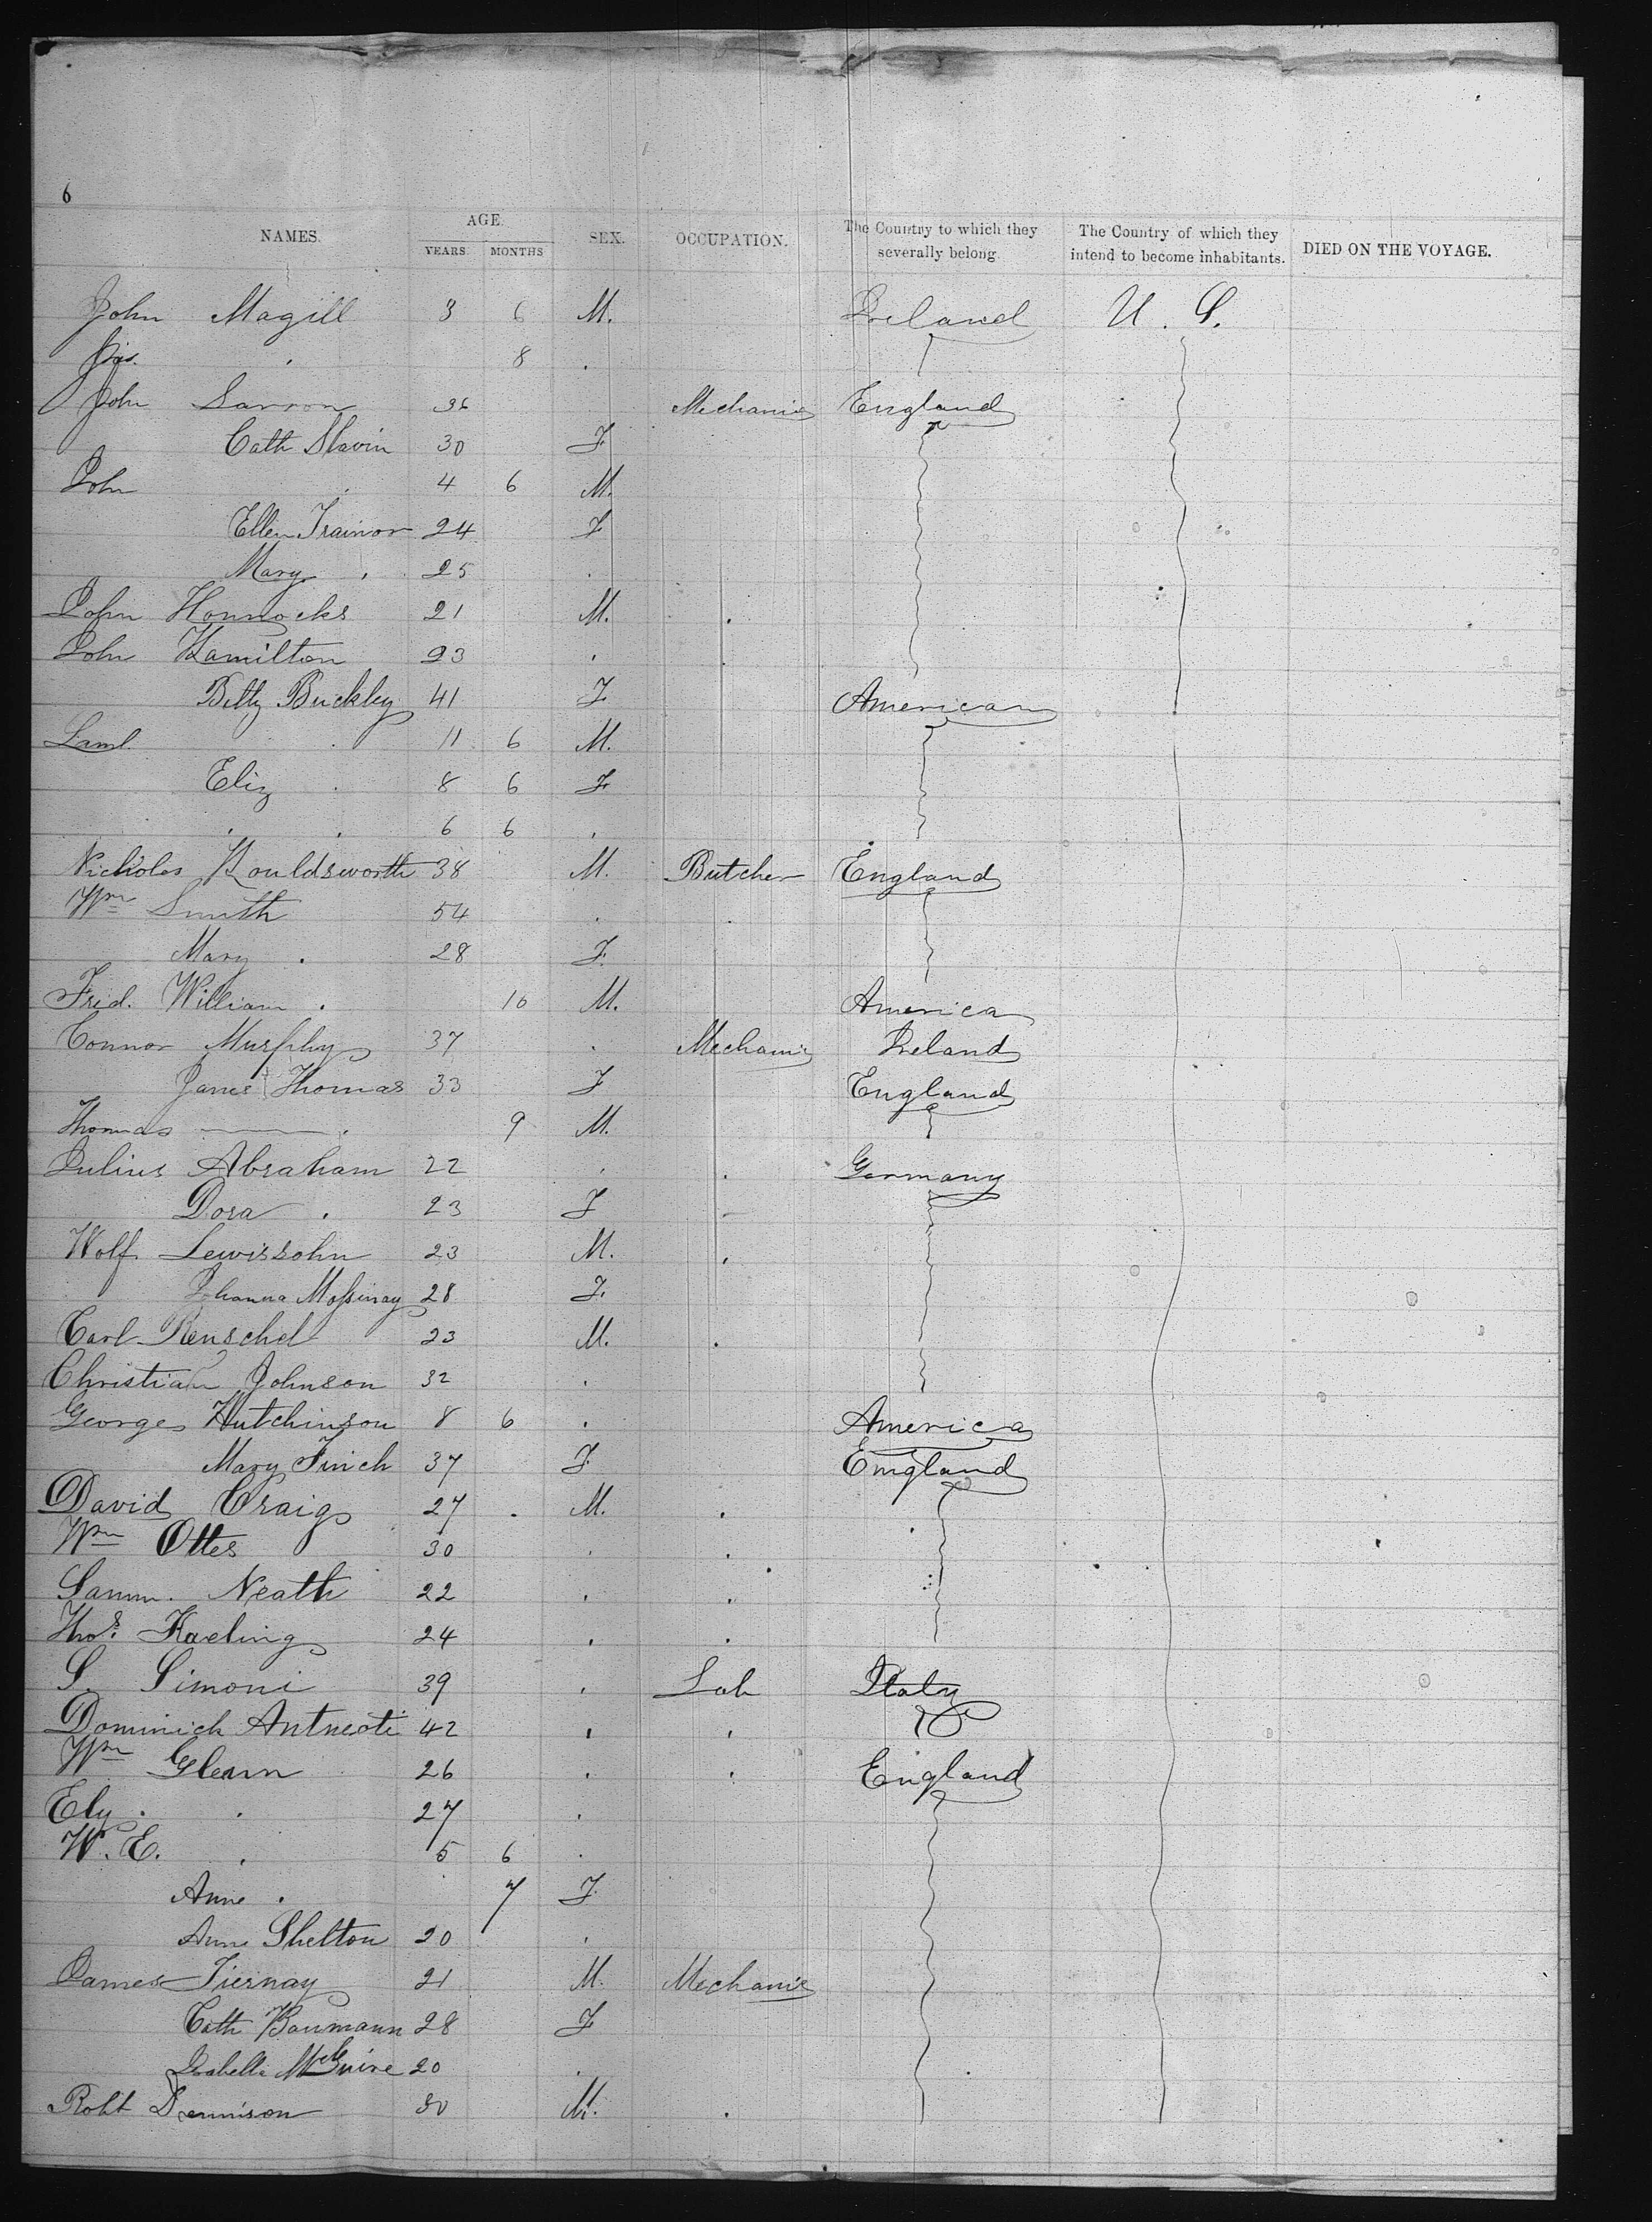 6
NAMES. AGE. YEARS MONTHS SEX. OCCUPATION. The Country to which they severally belong. The Country of which they intend to become inhabitants. DIED ON THE VOYAGE.
John Magill 3 6 M. Ireland U. S.
Jas. . 8 .
John 36 Mechanic England
Cath Slavin 30 F
John . 4 6 M.
Ellen Trainor 24 F
Mary . 25 .
John 21 M. .
John Hamilton 23 . .
Betty Buckley 41 F American
Saml. . 11 6 M.
Eliz . 8 6 F
. . 6 6 .
Nicholas Houldsworth 38 M. Butcher England
Wm Smith 54 . .
Mary . 28 F.
Fred. William . 10 M. America
Connor Murphy 37 . Mechanic Ireland
Jane Thomas 33 F England
Thomas . 9 M.
Julius Abraham 22 . . Germany
Dora . 23 F
Wolf Lewissohn 23 M. .
Johanna 28 F.
Carl Renschel 23 M. .
Christian Johnson 32 .
George Hutchinson 8 6 . America
Mary Finch 37 F England
David Craig 27 . M. .
Wm Ottes 30 . .
Samm. Neath 22 . .
Thos. Kaeling 24 . .
S. Simoni 39 . Lab Italy
Dominich 42 . .
Wm Glenn 26 . . England
Ely . . 27 .
W. E. . 5 6 .
Anne . 7 F
Anne Shelton 20 .
James Tiernay 21 M. Mechanic
Cath Baumann 28 F
Isabella McGuire 20 .
Robt Dennison 30 M. .